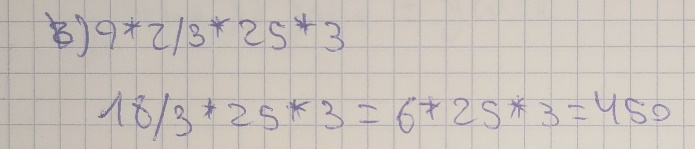 B) 9*2/3*25*3
18/3*25*3=6*25*3=450